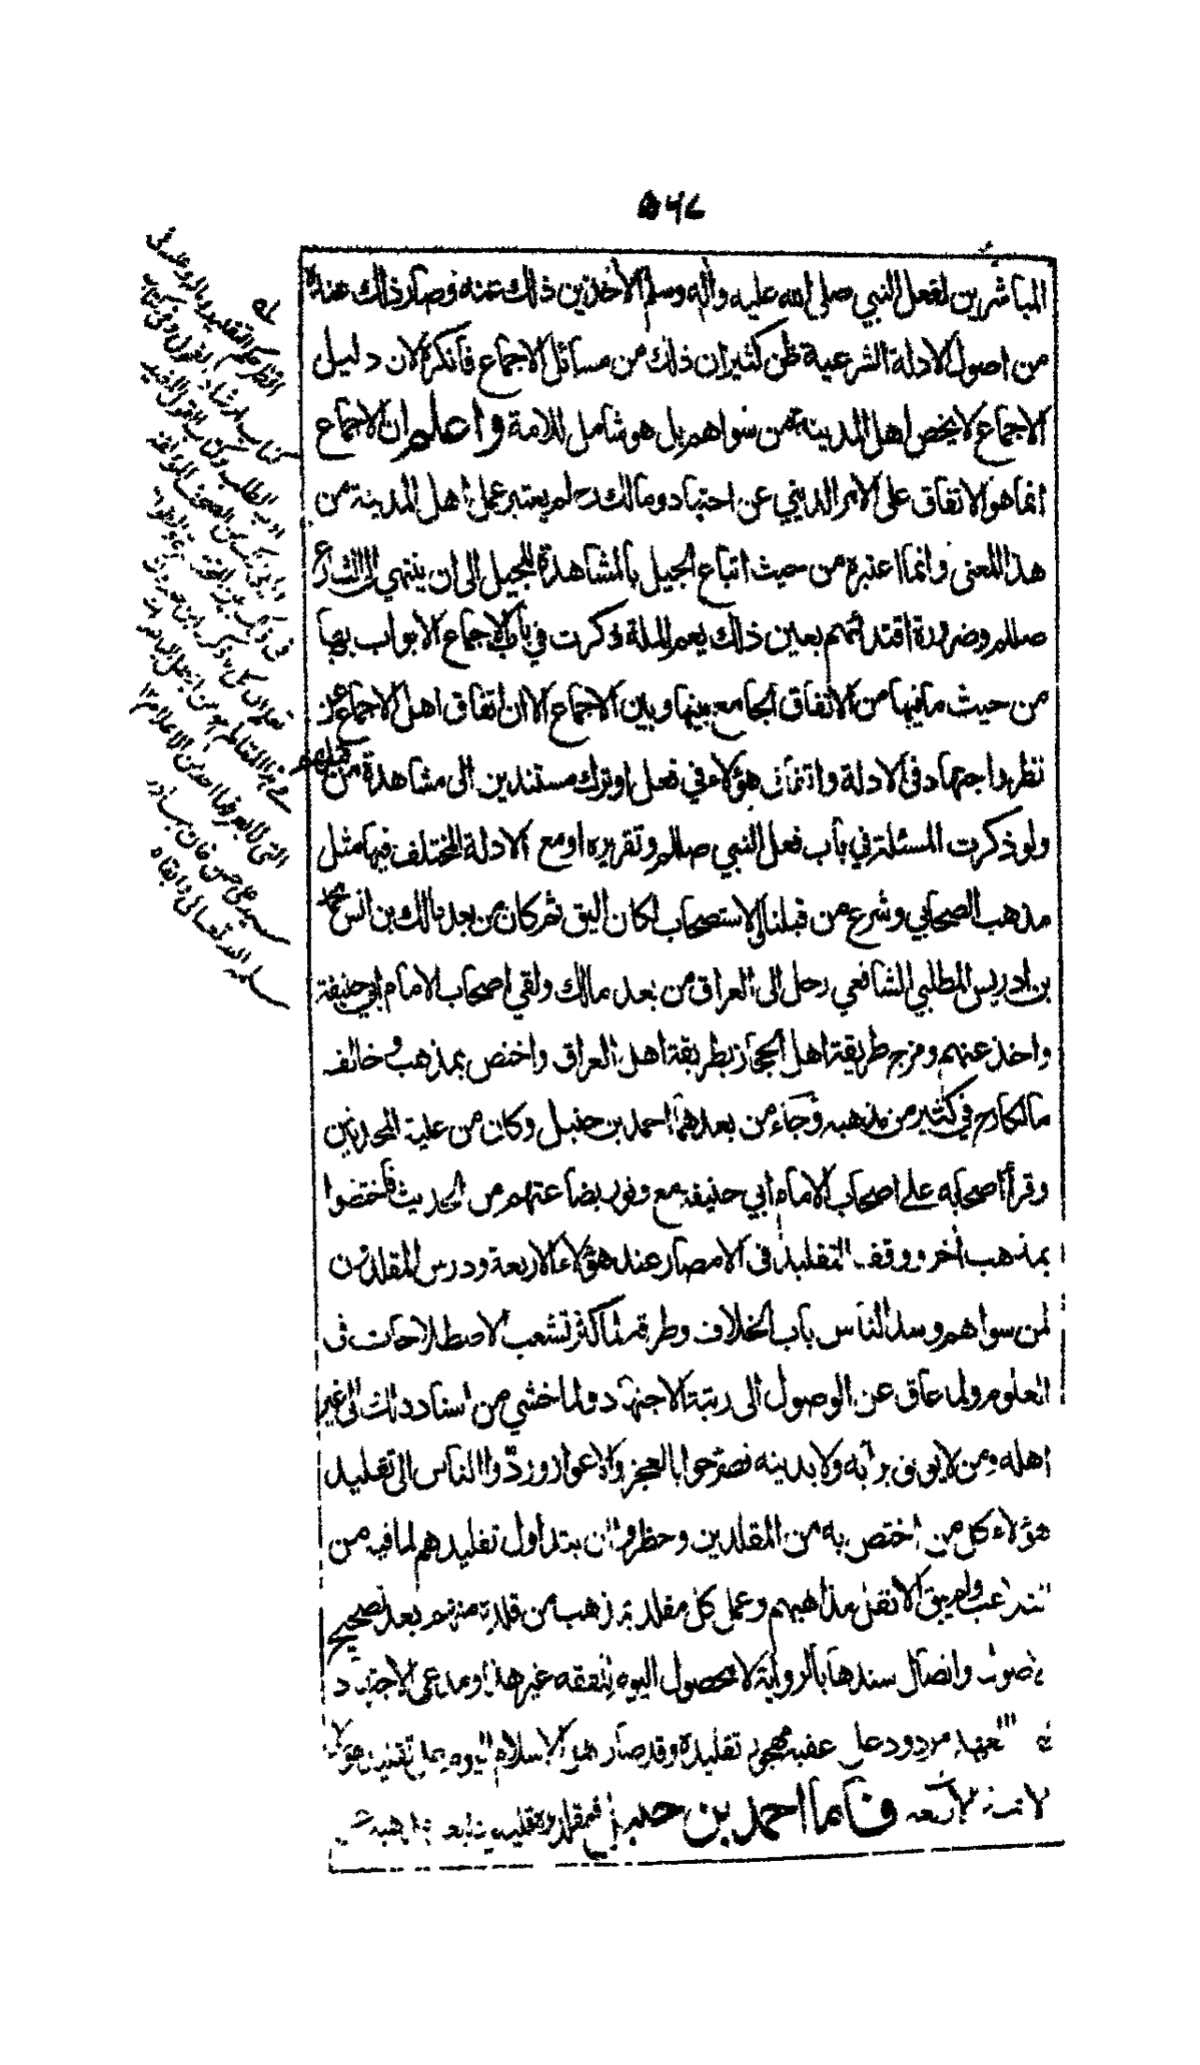 ٥٦٧
المباشرين لفعل النبي صلى الله عليه وآله وسلم الآخذين ذلك عنه وصار ذلك عنده
من اصول الادلة الشرعية وظن كثير ان ذلك من مسائل الاجماع فانكره لان دليل
الاجماع لا يخص اهل المدينة ممن سواهم بل هو شامل للامة واعلم ان الاجماع
انما هو الاتفاق على الامر الديني عن اجتهاد ومالك رح لم يعتبر عمل اهل المدينة من
هذا المعنى وانما اعتبره من حيث اتباع الجيل بالمشاهدة للجيل الى ان ينتهي الى الشارع
صللم وضرورة اقتدائهم بعين ذلك يعم الملة ذكرت في باب الاجماع الابواب بها
من حيث ما فيها من الاتفاق الجامع بينها وبين الاجماع الا ان اتفاق اهل الاجماع عن
نظر واجتهاد في الادلة واتفاق هؤلاء في فعل او ترك مستندين الى مشاهدة من قبلهم
ولو ذكرت المسئلة في باب فعل النبي صللم وتقريره او مع الادلة المختلف فيها مثل
مذهب الصحابي وشرع من قبلنا والاستصحاب لكان اليق ثم كان من بعد مالك بن انس محمد
بن ادريس المطلبي الشافعي رحل الى العراق من بعد مالك ولقي اصحاب الامام ابي حنيفة
واخذ عنهم ومزج طريقة اهل الحجاز بطريقة اهل العراق واختص بمذهب وخالف
مالكا رح في كثير من مذهبه وجاء من بعدهما احمد بن حنبل وكان من علية المحدثين
وقرأ اصحابه على اصحاب الامام ابي حنيفة مع وفور بضاعتهم من الحديث فاختصوا
بمذهب آخر ووقف التقليد في الامصار عند هؤلاء الاربعة ودرس المقلدون
لمن سواهم وسد الناس باب الخلاف وطرقه لما كثر تشعب الاصطلاحات في
العلوم ولما عاق عن الوصول الى رتبة الاجتهاد ولما خشي من اسناد ذلك الى غير
اهله ومن لا يوثق برأيه ولا بدينه فصرحوا بالعجز والاعواز وردوا الناس الى تقليد
هؤلاء كل من اختص به من المقلدين وحظروا ان يتداول تقليدهم لما فيه من
التلاعب ولم يبق الا نقل مذاهبهم وعمل كل مقلد بمذهب من قلده منهم بعد تصحيح
الاصول واتصال سندها بالرواية لا محصول اليوم للفقه غير هذا ومدعي الاجتهاد
لهذا العهد مردود على عقبه مهجور تقليده وقد صار اهل الاسلام اليوم على تقليد هؤلاء
الائمة الاربعة فاما احمد بن حنبل فمقلدوه قليل
انظر حكم التقليد وماله وعليه في
كتاب ارشاد الفحول وفي كتاب
الطلب وكتاب القول المفيد
سيد علي حسن خان بهادر
سلمه الله تعالى وابقاه